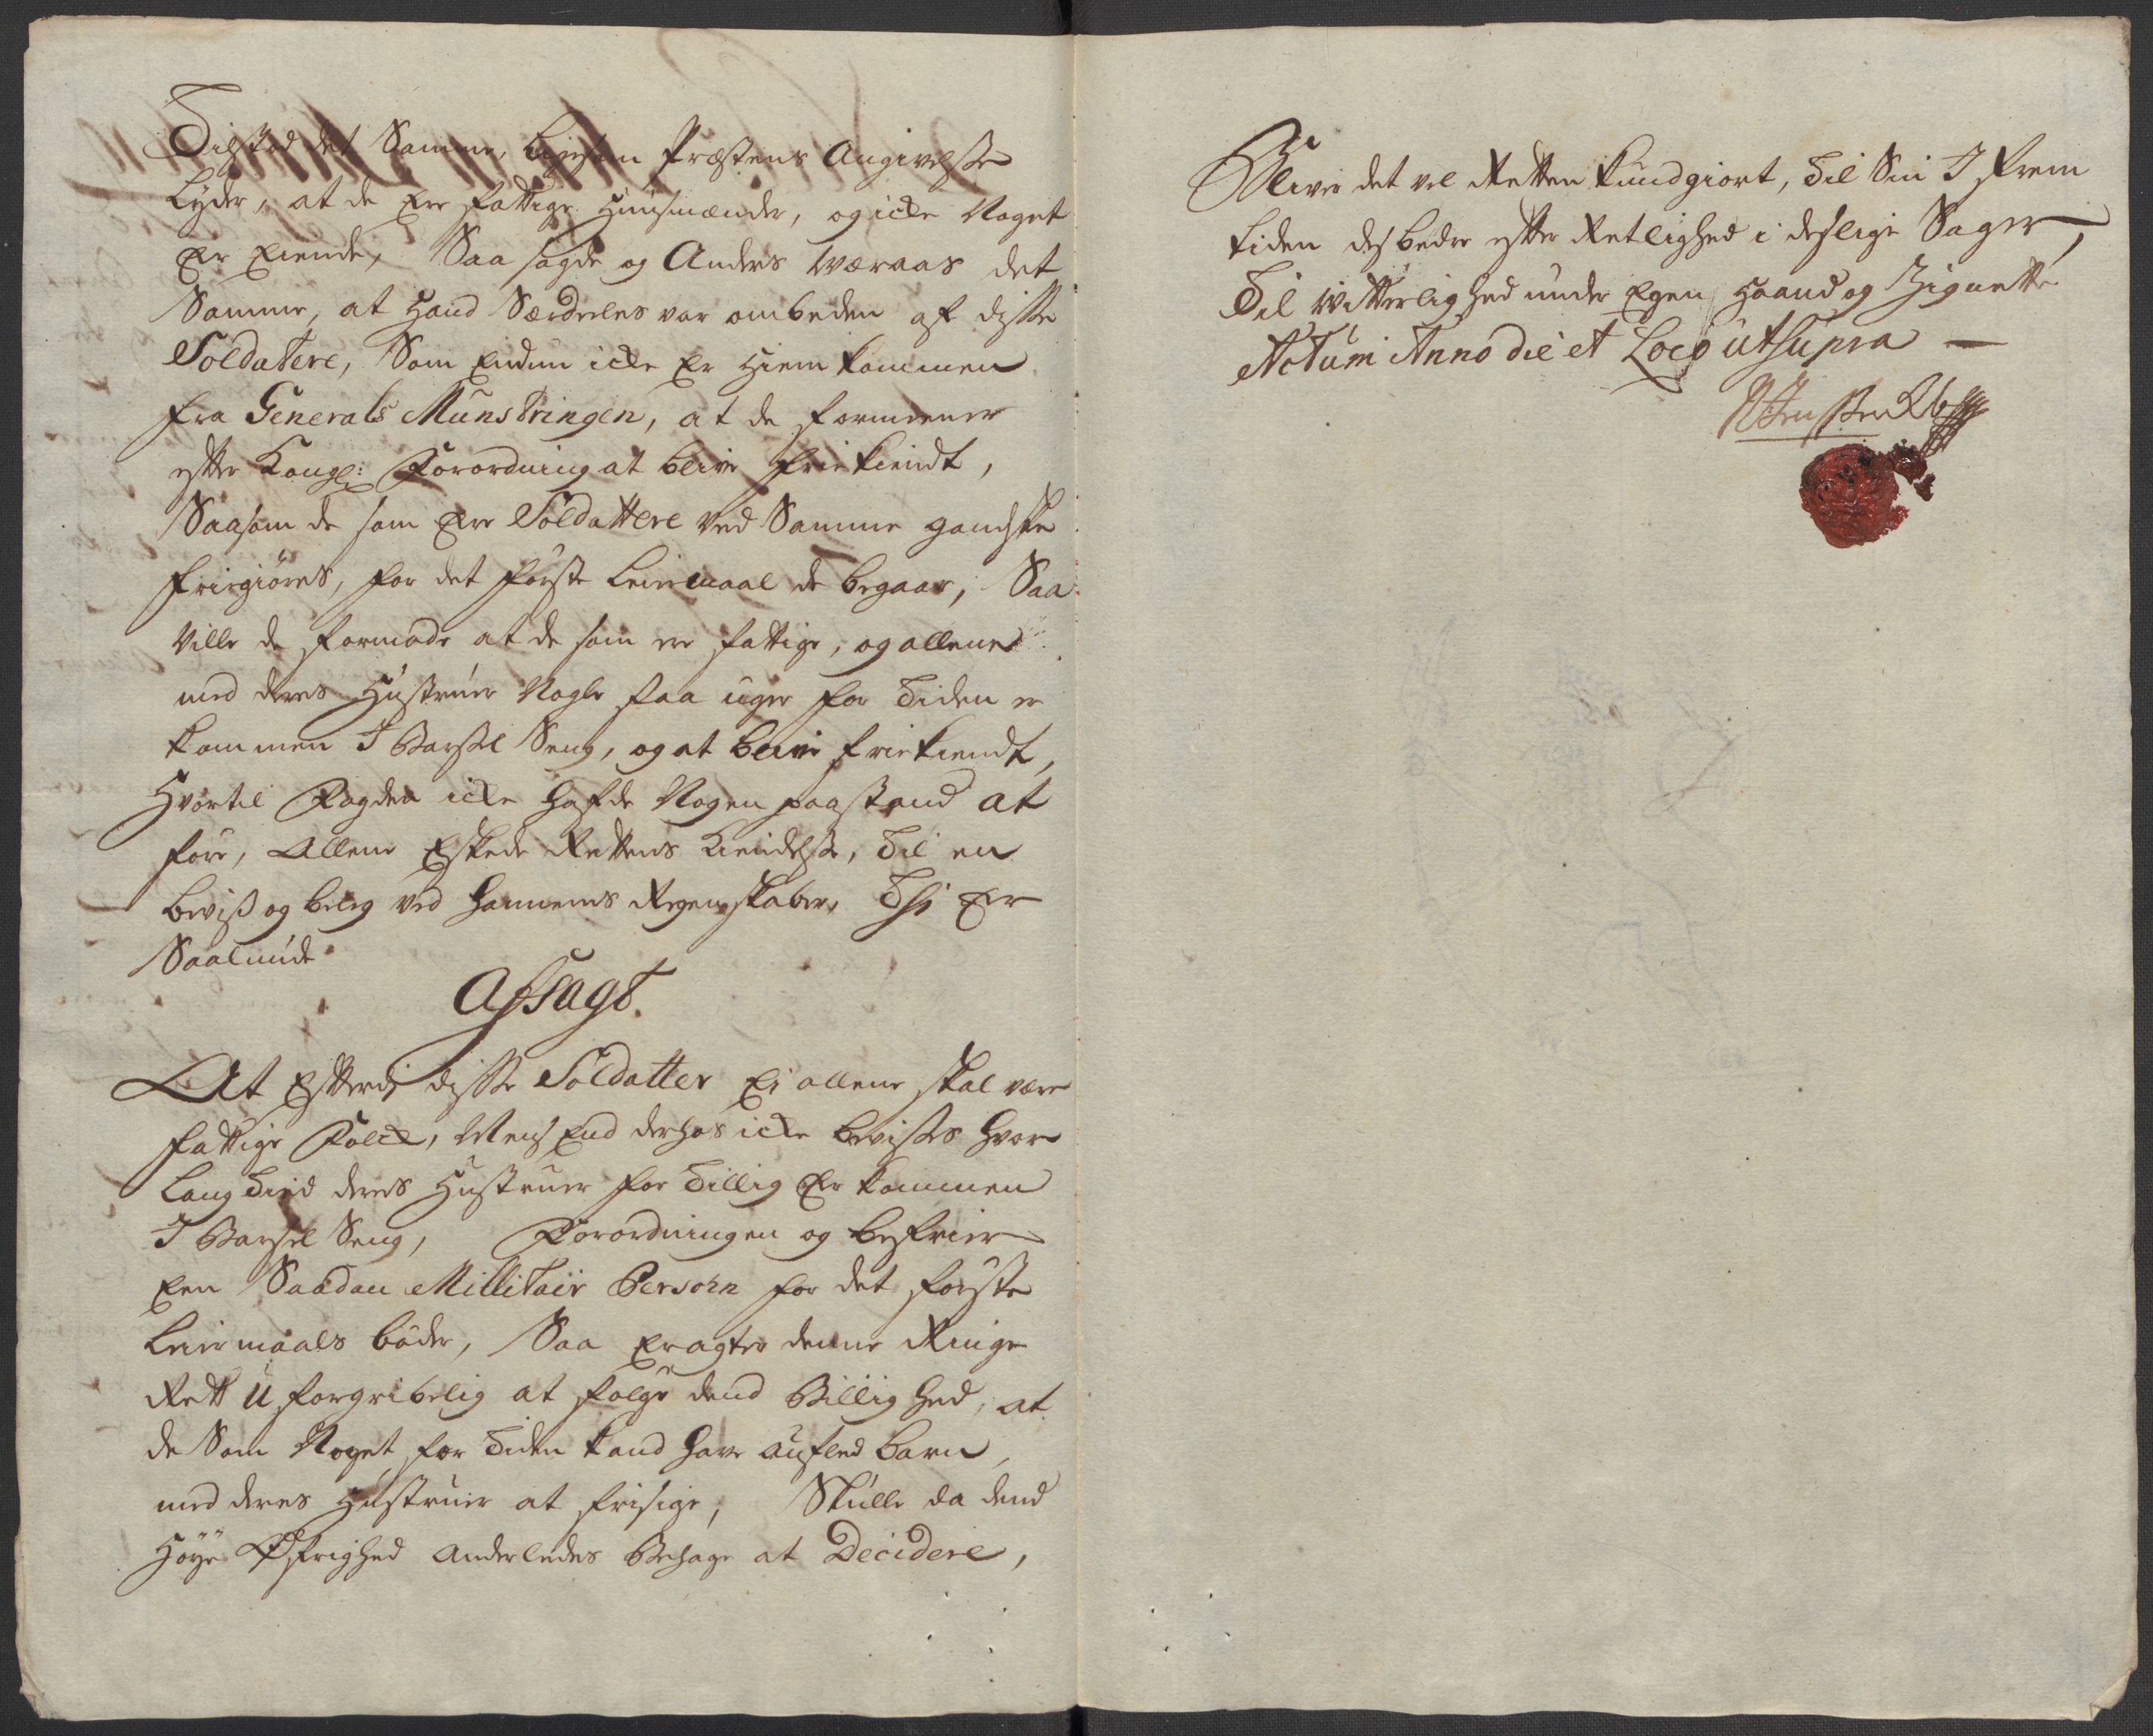 Tilstod det Samme, Ligesom Præstens Angivelsse
Lyder, at de Ere fattige Huusmænder, og icke Noget
Er Eiende, Saa sagde og Anders Wæraas det
Samme, at Hand Særdeeles var ombeden af disse
Soldatere, Som Endnu icke Er Hiem kommen
fra Generals Munstringen, at de formeener
efter Kongl: Forordning at blive frikiendt,
Saasom de som Ere Soldattere ved Samme gandske
frigiøres, for det første Leiermaal de begaar, Saa
Ville de formode at de som ere fattige, og allene
med deres Hustruer Nogle faa uger for Tiden er
kommen I Barsel Seng, og at blive friekiendt,
Hvortil Fogden icke hafde Nogen paastand at
føre, Allene Eskede Rettens Kiendelsse, Til en
beviß og beleg ved hannems Regenskaber, Thi Er
Saaleniede
Afsagt.
At Efterdj disse Soldatter Ei allene skal være
fattige Folck, Mens End derhos icke bevisses hvor
Lang Tiid deres Hustruer for Tillig Er kommen
I Barsel Seng, Forordningen og befrier
Een Saadan Millitair Persohn for det første
Leiermaals bøder, Saa Eragter denne Ringe
Rett Uforgribelig at følge dend Billighed, at
de Som Noget for Tiden kand have aufled Barn,
med deres Hustruer at frisige, Skulle da dend
Høye Øfrighed Anderledes Behage at Decidere,
Blive det vel Retten kundgiort, Til Sin I frem
tiden des bedre efter Retlighed i deslige Sager,
Til Witterlighed under Egen Haand og Zignette
Actum Anno die et Loco utsupra —